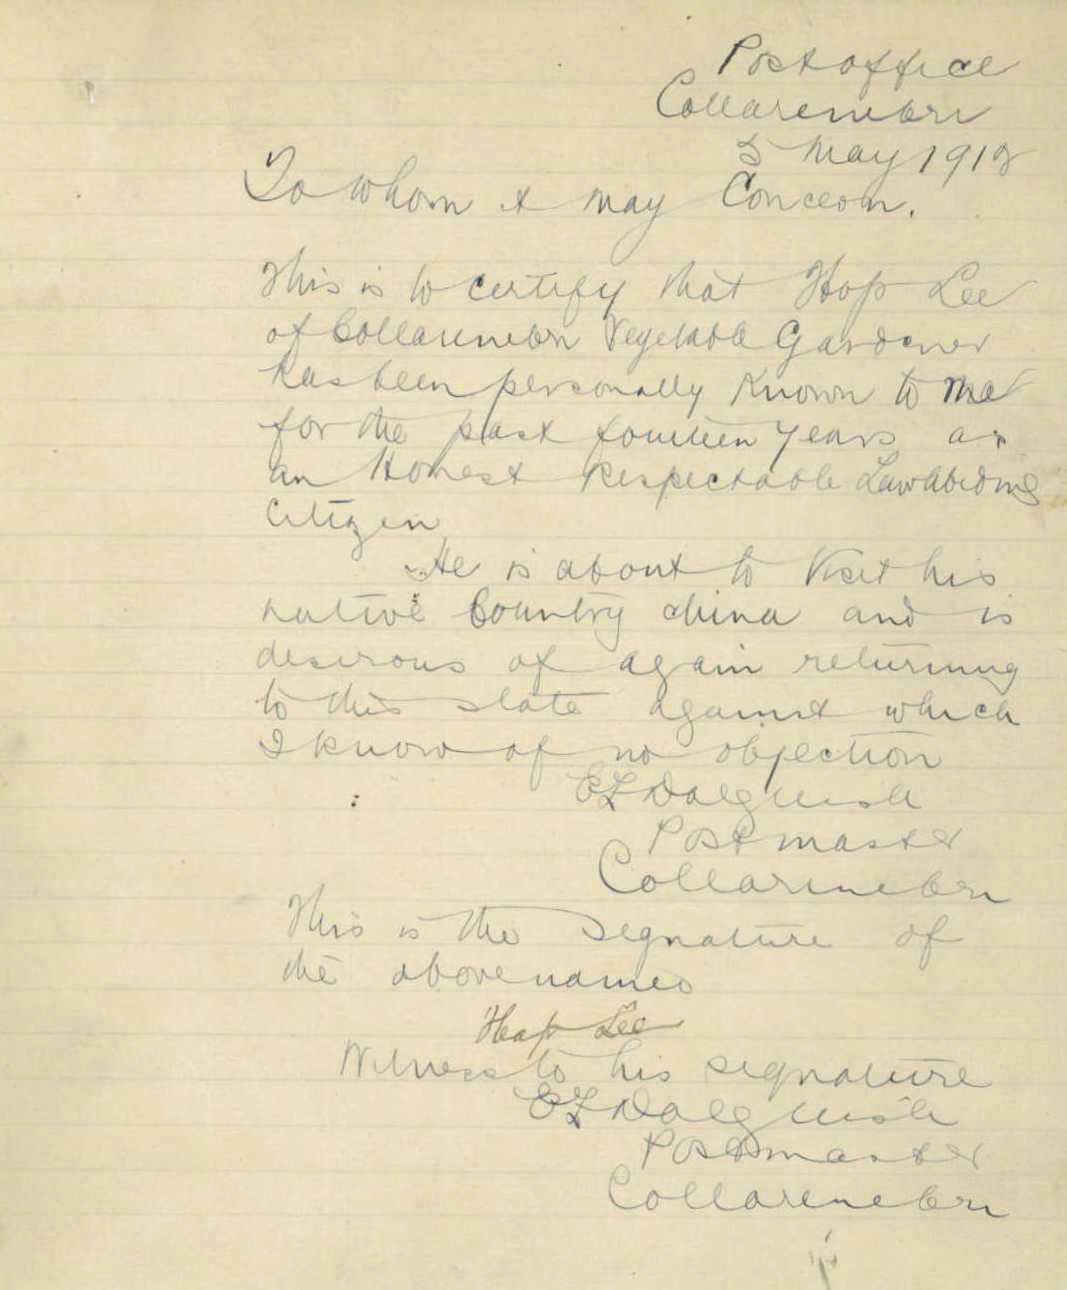 Post office
Collarenebri
5 May 1912
To whom it may Concern.
This is to certify that Hop Lee
of Collarenebri Vegetable Gardener
has been personally Known to me
for the past fourteen years as
an Honest Respectable Lawabiding
Citizen
He is about to Visit his
native Country China and is
desirous of again returning
to this state against which
I know of no objection
E L Dalgleish
Postmaster
Collarenebri
This is the signature of
the abovenamed
Hop Lee
Witness to his signature
E L Dalgleish
Postmaster
Collarenebri